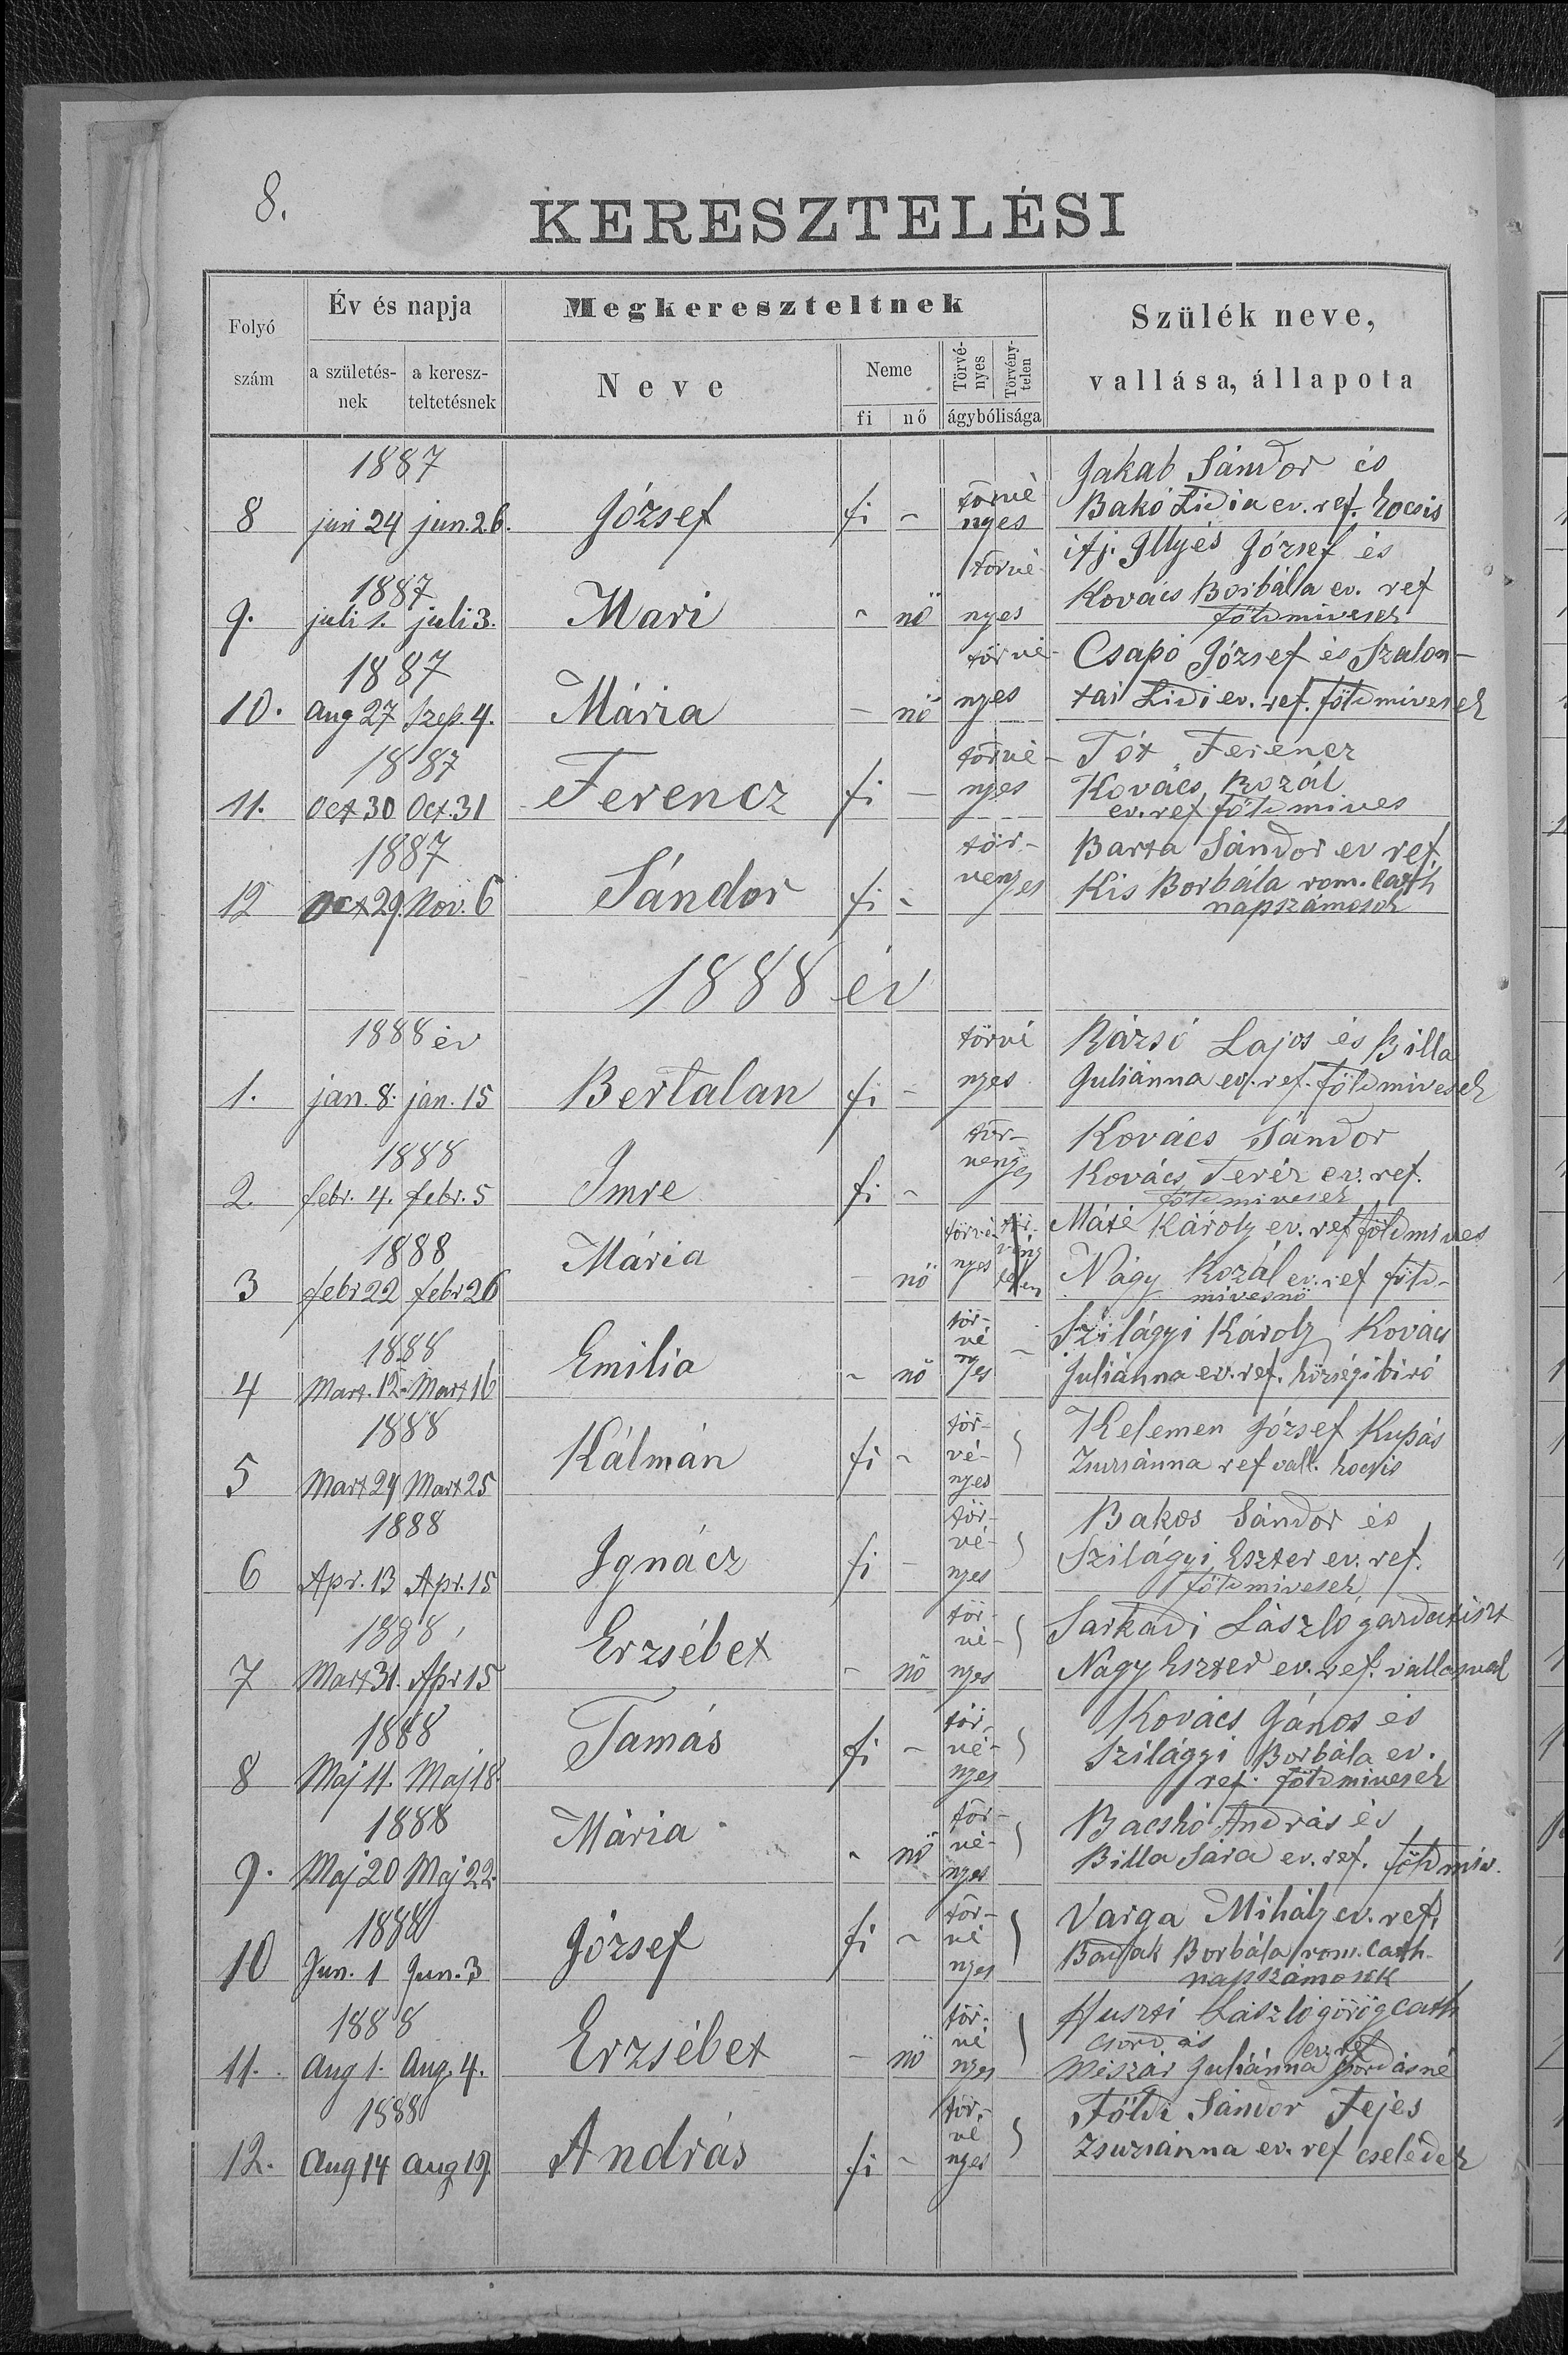 8.
KERESZTELÉSI
Folyó szám
Év és napja
a születés-nek
a keresz-teltetésnek
Megkereszteltnek
Neve
Neme
fi nő
Törvé-nyes Törvény-telen
ágybólisága
Szülék neve,
vallása, állapota
1887
Jakab Sándor és
törvé-
8 jun 24 jun. 26. József fi - nyes Bakó Lidia ev. ref. kocsis
törvé- ifj. Illyés József és
1887 Kovács Borbála ev. ref
9. juli 1. juli 3. Mari - nő nyes földmivesek
1887 törvé- Csapó József és Szalon-
10. Aug 27 Szep. 4. Mária - nő nyes tai Lidi ev. ref. földmivesek
1887 törvé- Tót Ferencz
Kovács Rozál
11. Oct 30 Oct. 31 Ferencz fi - nyes ev. ref földmives
1887 tör- Barta Sándor ev ref.
venyes Kis Borbála rom. cath
12 Oct 29. Nov. 6 Sándor fi - napszámosok
1888 év
1888 év törvé Rázsó Lajos és Billa
1. jan. 8. jan. 15 Bertalan fi - nyes Juliánna ev. ref. földmivesek
1888 tör- Kovács Sándor
venyes Kovács Teréz ev. ref.
2. febr. 4. febr. 5 Imre fi - földmivesek
1888 törvé- tör- Máté Károly ev. ref földmives
nyes vény
3 febr 22 febr 26 Mária - nő telen Nagy Rozál ev. ref föld-
mivesnő
1888 tör- Szilágyi Károly Kovács
vé
4 Mart. 12. Mart 16 Emilia - nő nyes - Juliánna ev. ref. községi biró
1888 tör- Kelemen József Kupás
vé- Zsuzsánna ref vall. kocsis
5 Mart 24 Mart 25 Kálmán fi - nyes
1888 tör- Bakos Sándor és
vé- Szilágyi Eszter ev. ref.
6 Apr. 13 Apr. 15 Ignácz fi - nyes földmivesek
1888 tör- Sarkadi László gazdatiszt
vé-
7 Mart 31. Apr 15 Erzsébet - nő nyes Nagy Eszter ev. ref. vallasuak
1888 tör- Kovács János és
vé- Szilágyi Borbála ev.
8 Maj 11. Maj 18. Tamás fi - nyes ref. földmivesek
1888 tör- Bacskó András és
vé- Billa Sára ev. ref. földmiv.
9. Maj 20 Maj 22. Mária - nő nyes
1888 tör- Varga Mihály ev. ref.
vé Borbála rom. cath.
10 Jun. 1 Jun. 3 József fi - nyes napszámosok
1888 tör- Huszti László görög cath
vé csordás ev. ref
11. Aug 1. Aug. 4. Erzsébet - nő nyes Mészár Juliánna csordásné
1888 tör- Földi Sándor Fejes
vé Zsuzsánna ev. ref cselédek
12. Aug 14 Aug 19. András fi - nyes